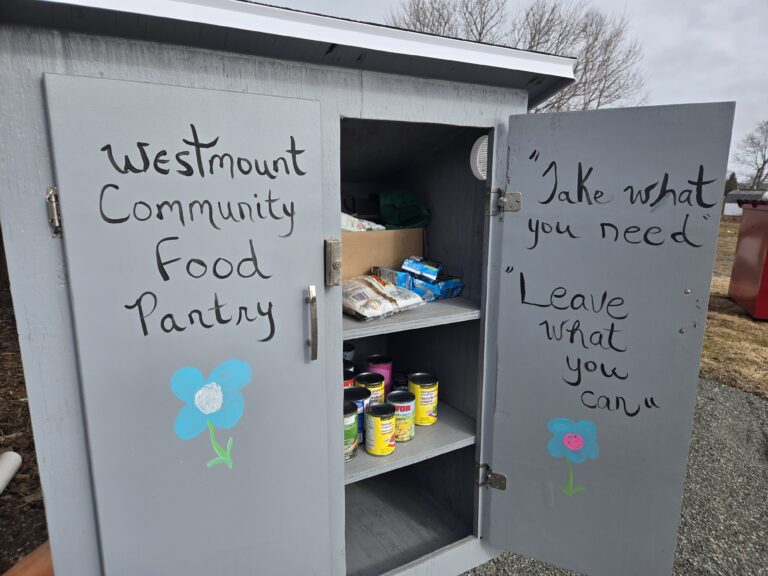 Westmount
Community
Food
Pantry
"Take what
you need"
"Leave
what
you
can"